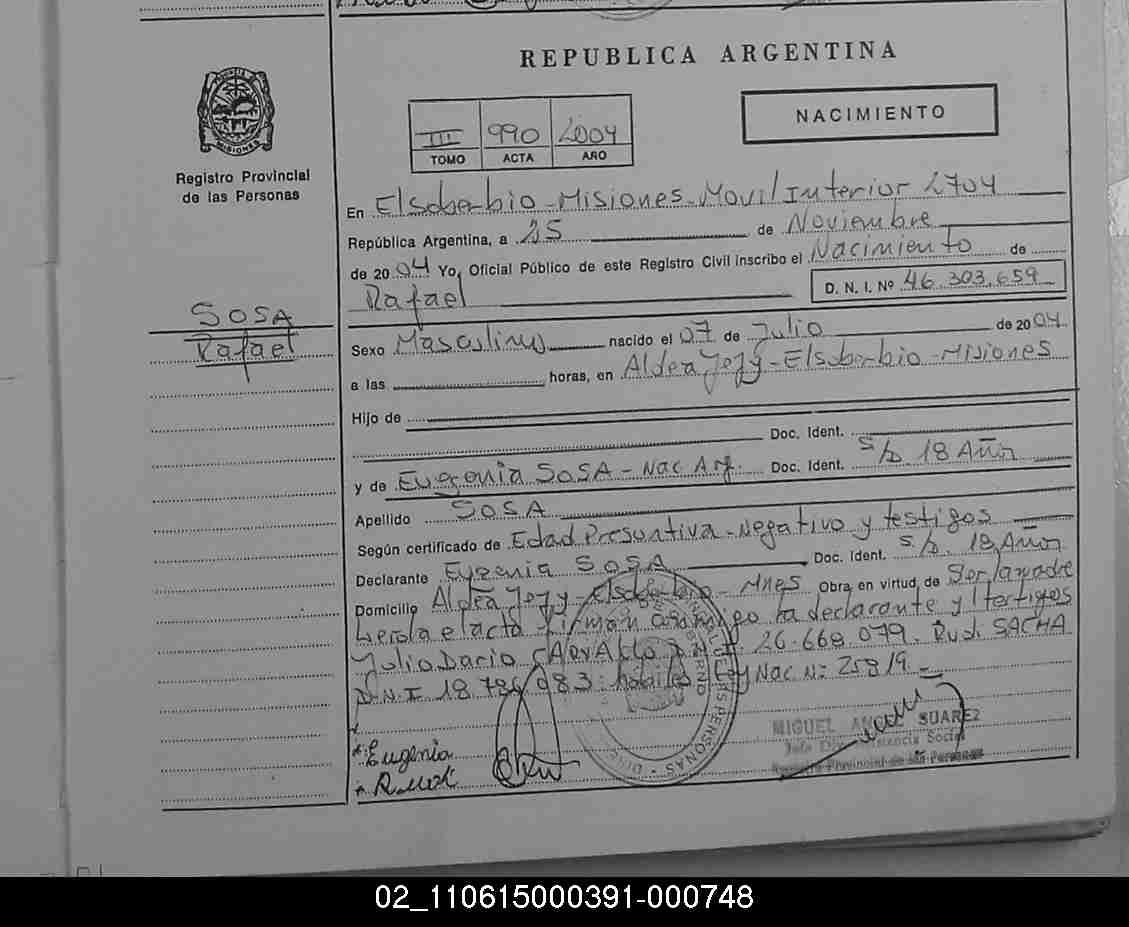 REPUBLICA ARGENTINA
PROVINCIA DE MISIONES
Registro Provincial
de las Personas
III 990 2004
TOMO ACTA AÑO
NACIMIENTO
En Elsoberbio - Misiones - Movil Interior 2704
República Argentina, a 25 de Noviembre
de 2004 Yo, Oficial Público de este Registro Civil inscribo el Nacimiento de
Rafael D. N. I. Nº 46.303.659
SOSA
Rafael
Sexo Masculino nacido el 07 de Julio de 2004
a las horas, en Aldea Jejy - Elsoberbio - Misiones
Hijo de
Doc. Ident.
y de Eugenia SOSA - Nac Arg. Doc. Ident. S/D 18 Años
Apellido SOSA
Según certificado de Edad Presuntiva - Negativo y testigos
Declarante Eugenia SOSA Doc. Ident. S/D. 18 Años
Domicilio Aldea Jejy - Elsoberbio - Mnes Obra en virtud de Ser la madre
el acta Firman la declarante y testigos
Julio Dario D.N.I. 26.668.079. SACHA
D.N.I 18.786.983 habiles Ley Nac N: 25819.-
MIGUEL ANGEL SUAREZ
Jefe Asistencia Social
Registro Provincial de las Personas
Eugenia
02_110615000391-000748